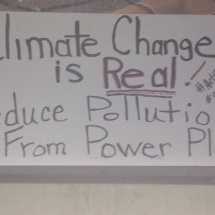 limate Change
is Real!
duce Pollutio
From Power Pl